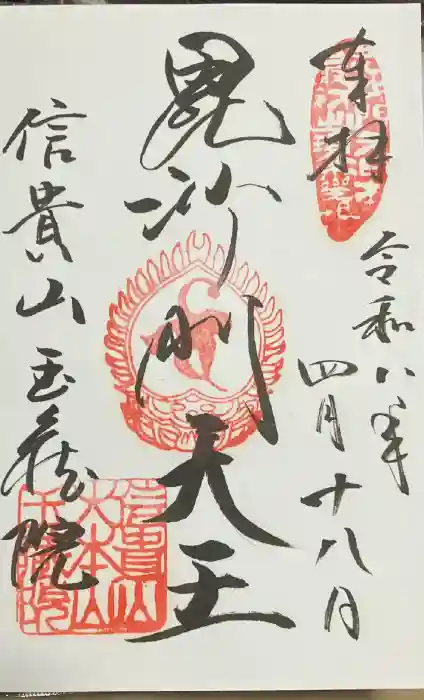 奉拝
令和八年
四月十八日
毘沙門天王
信貴山玉蔵院
信貴山
大本山
玉蔵院